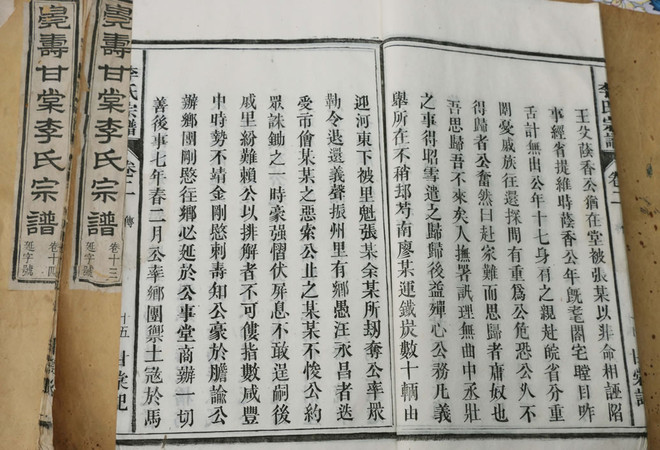 王父蔭香公猶在堂被張某以非命相誣陷
事經省提維時蔭香公年既耄闔宅瞠目咋
舌計無出公年十七身召之親赴皖省分重
闈憂戚族往還探問有重為公危恐公久不
得歸者公奮然曰赴家難而思歸者庸奴也
吾思歸吾不來矣人撫署訊理無曲中丞壯
之事得昭雪遣之歸歸後益殫心公務凡義
舉所在不稍却芍南廖某運鐵炭數十輛由
迎河東下被里魁張某余某所刼奪公率眾
勒令退還義聲振州里有鄉愚汪永昌者迭
受市儈某某之惡索公止之某某不悛公約
眾誅鋤之一時豪强慴伏屏息不敢逞嗣後
戚里紛難賴公以排解者不可僂指數咸豐
中時勢不靖金剛愍刺壽知公豪於膽諭公
辦鄉團剛愍往鄉必延於公事堂商辦一切
善後事七年春二月公率鄉團禦土寇於馬
李氏宗譜 卷二 傳 十五 甘棠祀
壽甘棠李氏宗譜 卷十三 延字號
壽甘棠李氏宗譜 卷十四 延字號